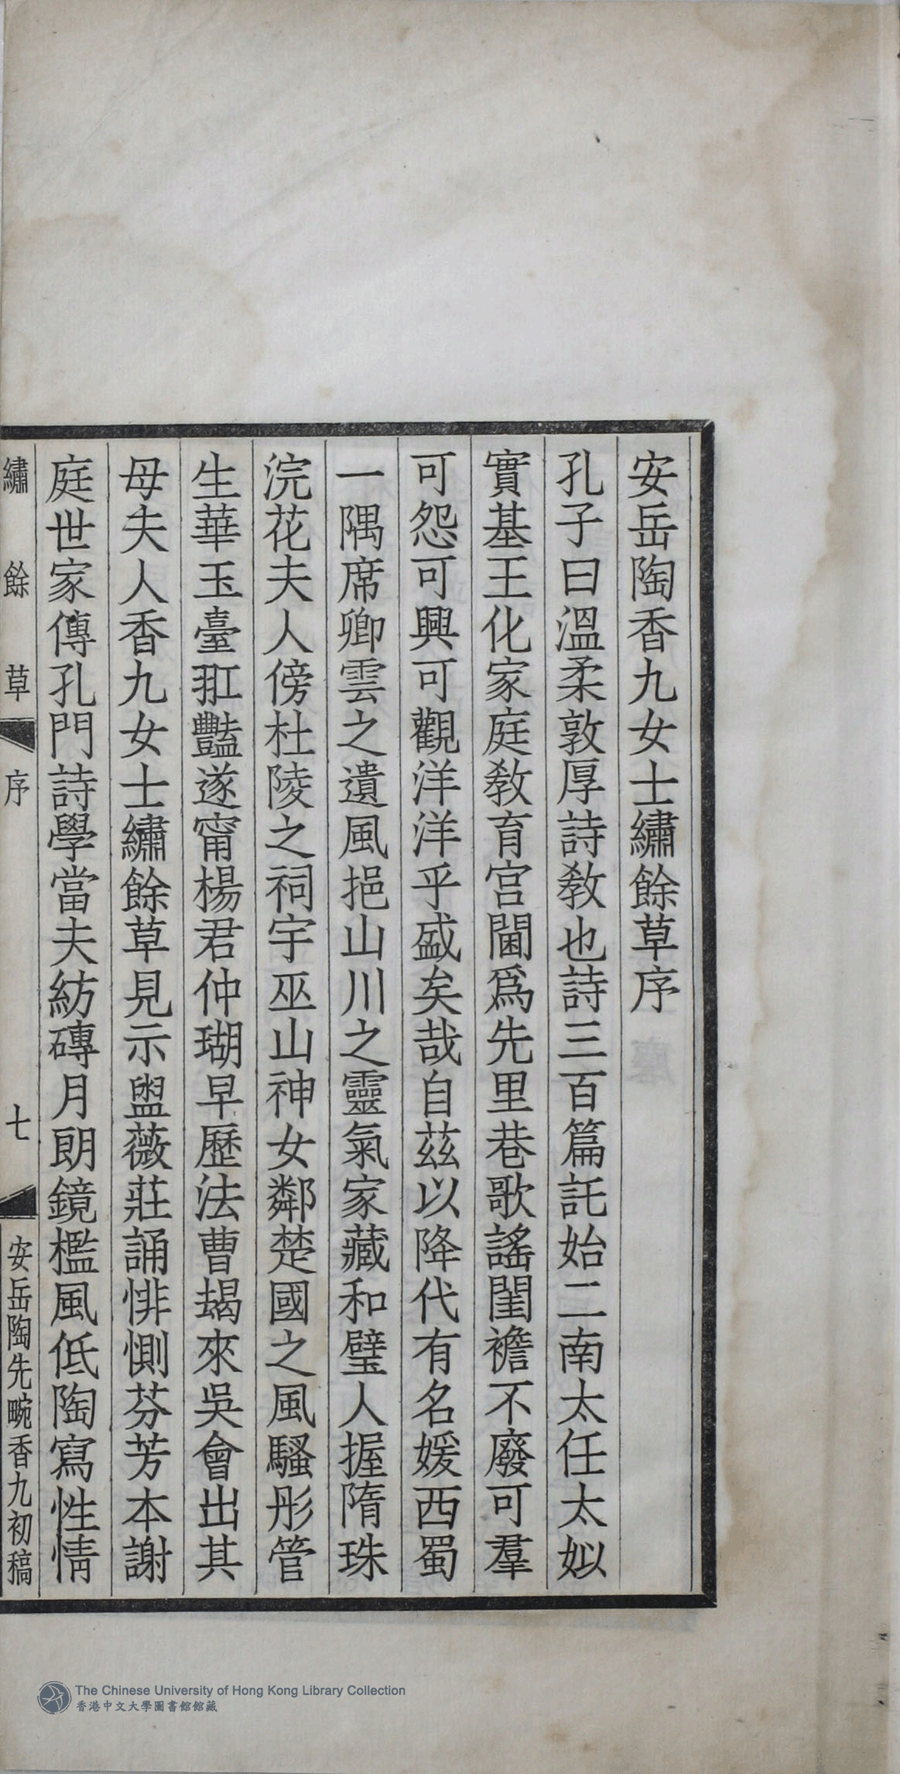 安岳陶香九女士繡餘草序
孔子曰溫柔敦厚詩教也詩三百篇託始二南太任太姒
實基王化家庭教育宮閫爲先里巷歌謠閨襜不廢可羣
可怨可興可觀洋洋乎盛矣哉自茲以降代有名媛西蜀
一隅席卿雲之遺風挹山川之靈氣家藏和璧人握隋珠
浣花夫人傍杜陵之祠宇巫山神女鄰楚國之風騷彤管
生華玉臺豔遂甯楊君仲瑚早歷法曹朅來吳會出其
母夫人香九女士繡餘草見示盥薇莊誦悱惻芬芳本謝
庭世家傳孔門詩學當夫紡磚月朗鏡檻風低陶寫性情
繡餘草 序 七 安岳陶先畹香九初稿
The Chinese University of Hong Kong Library Collection
香港中文大學圖書館館藏